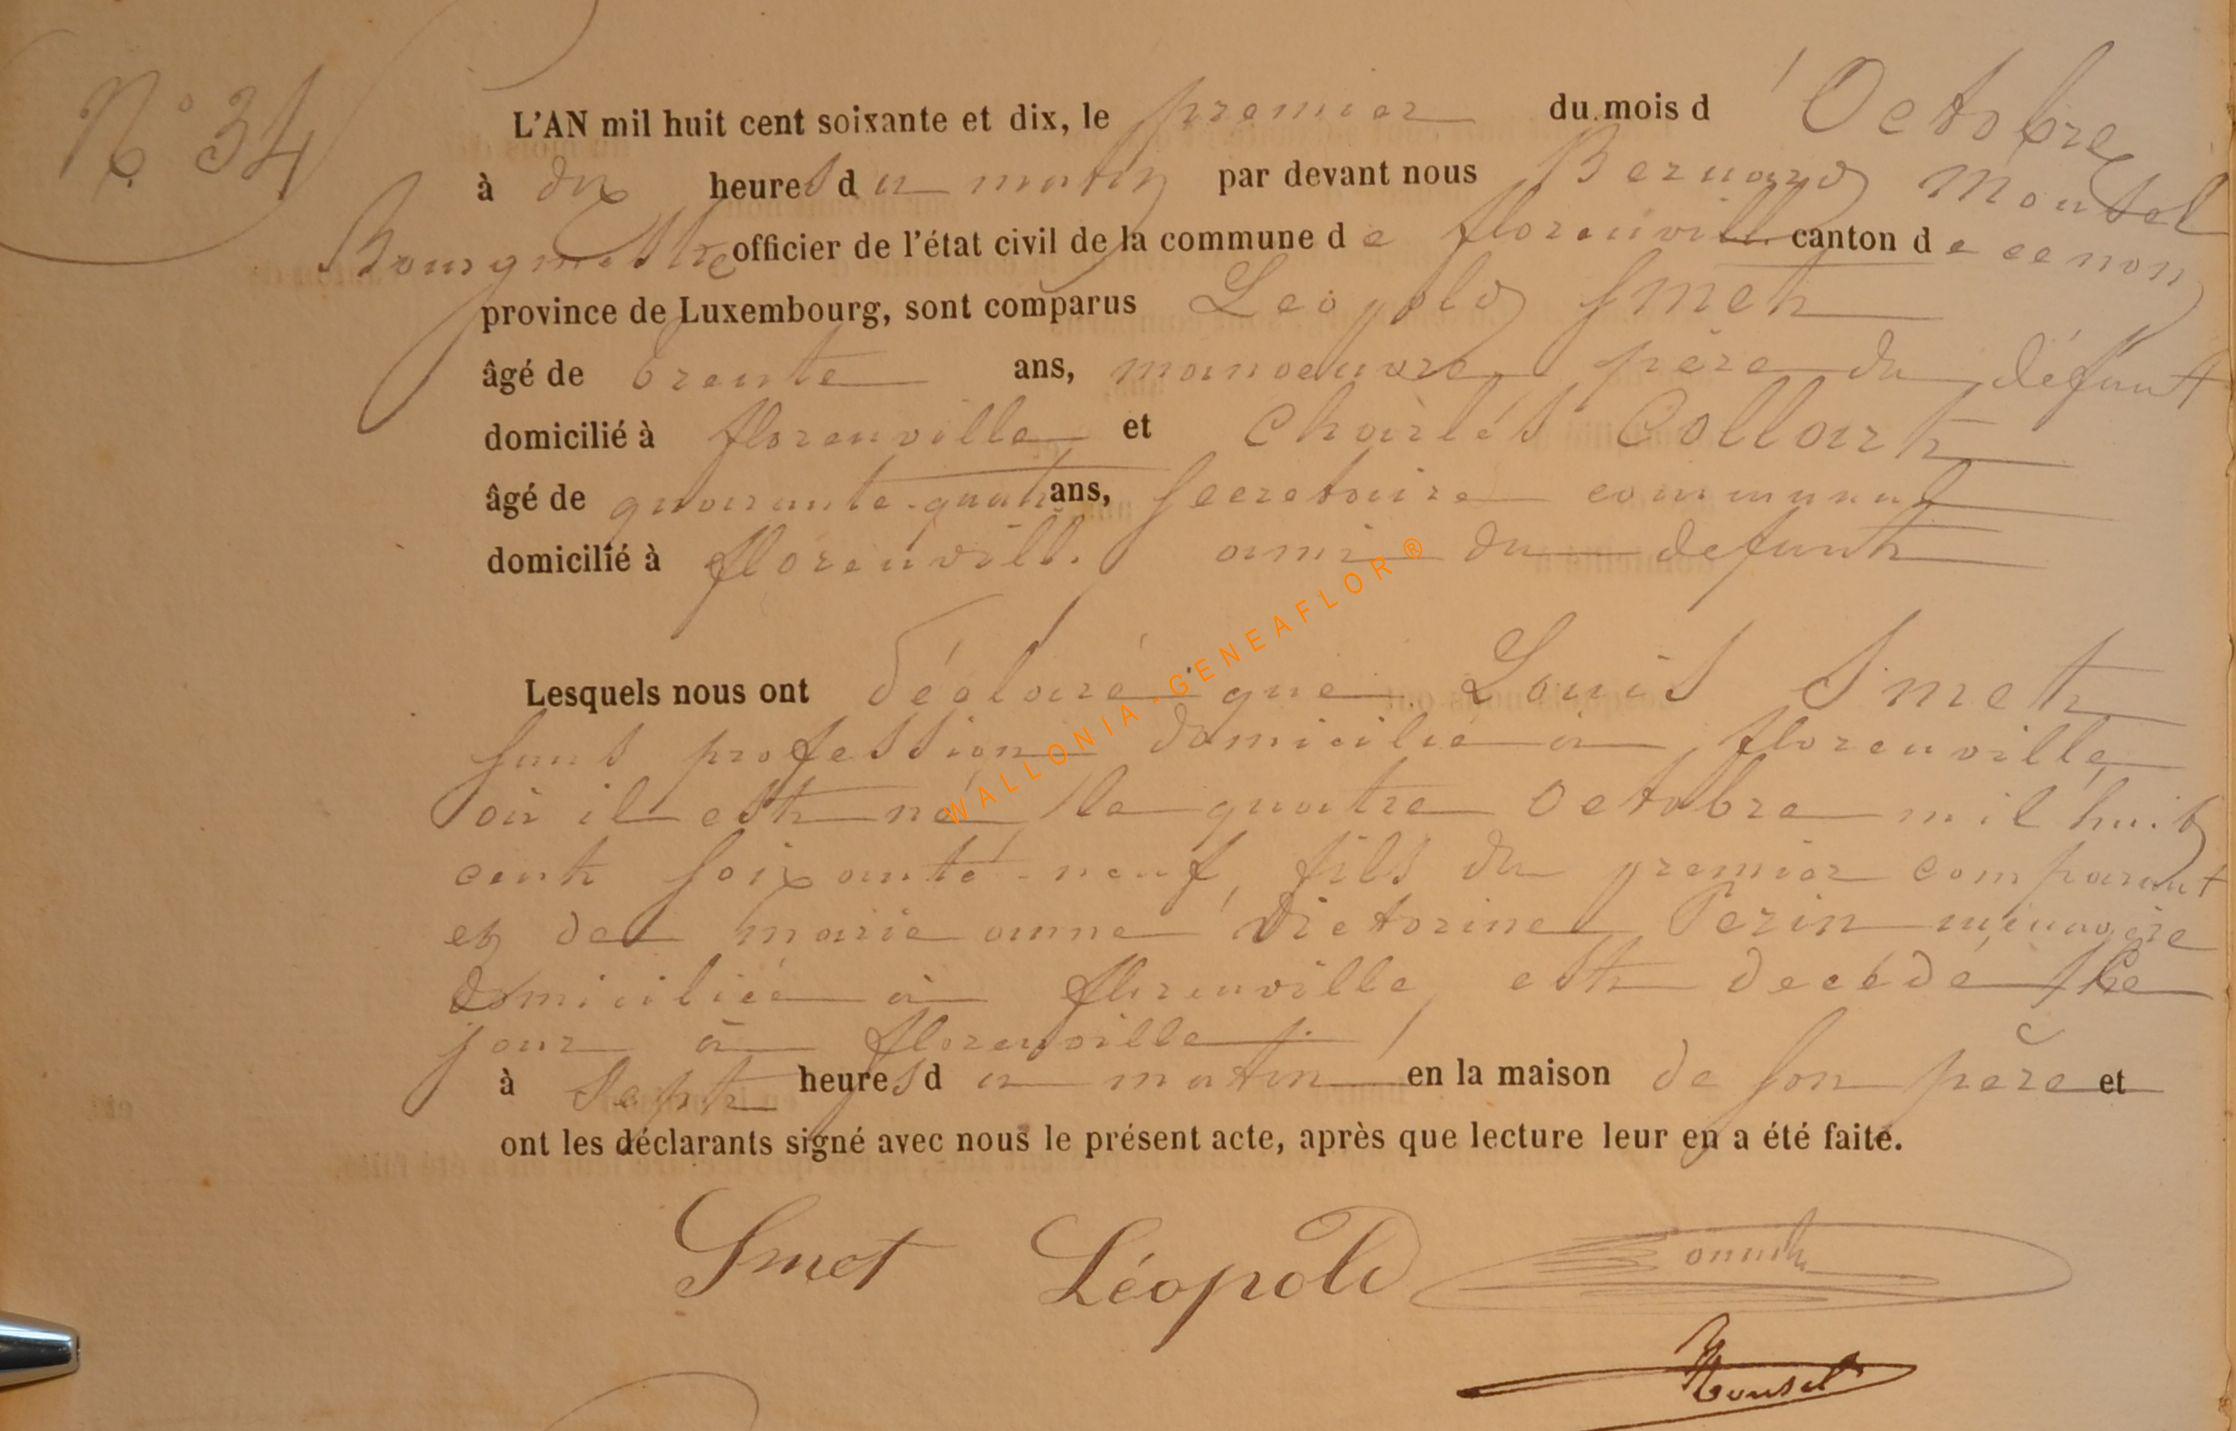 N° 34
L'AN mil huit cent soixante et dix, le premier du mois d'Octobre
à dix heures du matin par devant nous Bernard Mousel
Bourgmestre officier de l'état civil de la commune de florenville canton de ce nom
province de Luxembourg, sont comparus Leopold Smet
âgé de trente ans, manoeuvre père du défunt
domicilié à florenville et Charles Collart
âgé de quarante-quatre ans, Secretaire communal
domicilié à florenville ami du defunt
Lesquels nous ont déclaré que Louis Smet
sans profession domicilié à florenville
où il est né, le quatre Octobre mil huit
cent soixante-neuf, fils du premier comparant
et de marie anne Victorine Perin ménagère
domiciliée à florenville, est decédé ce
jour à florenville
à Sept heures du matin en la maison de son père et
ont les déclarants signé avec nous le présent acte, après que lecture leur en a été faite.
Smet Léopold
Mousel
WALLONIA-GENEAFLOR®